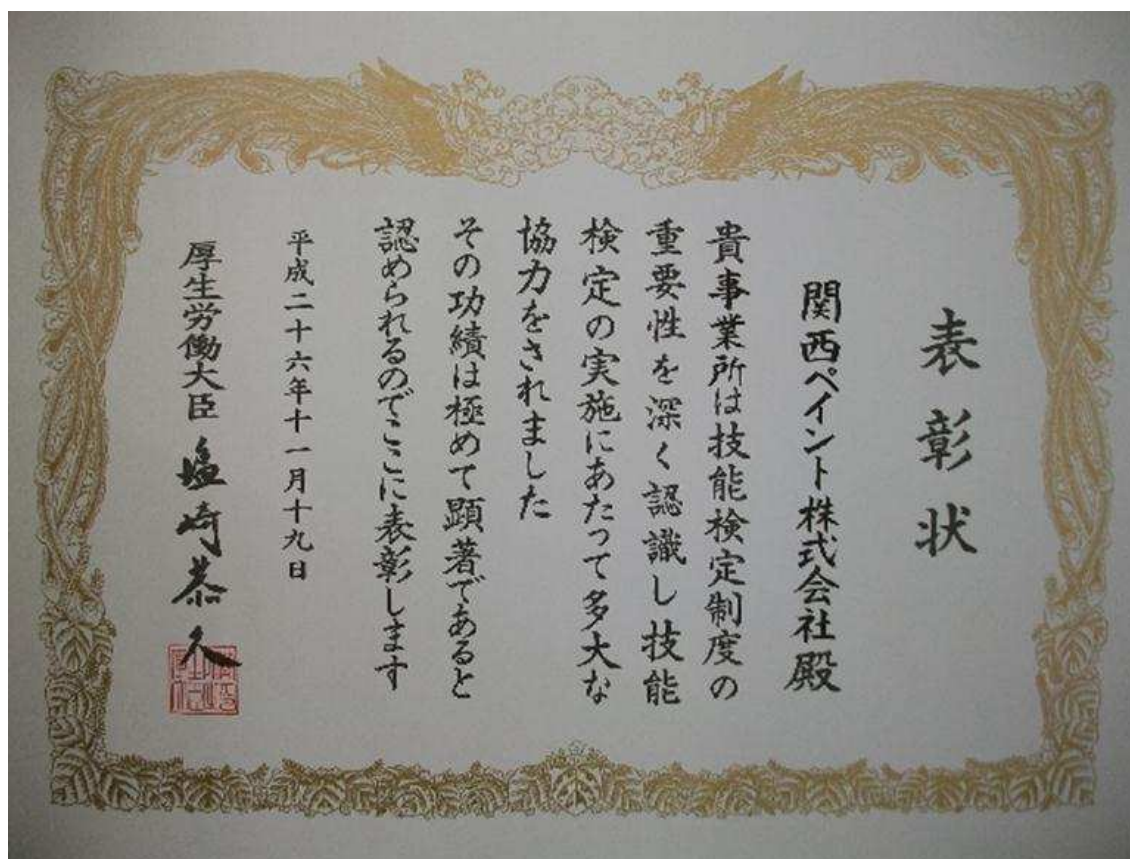 表彰状
関西ペイント株式会社殿
貴事業所は技能検定制度の
重要性を深く認識し技能
検定の実施にあたって多大な
協力をされました
その功績は極めて顕著であると
認められるのでここに表彰します
平成二十六年十一月十九日
厚生労働大臣 塩崎恭久